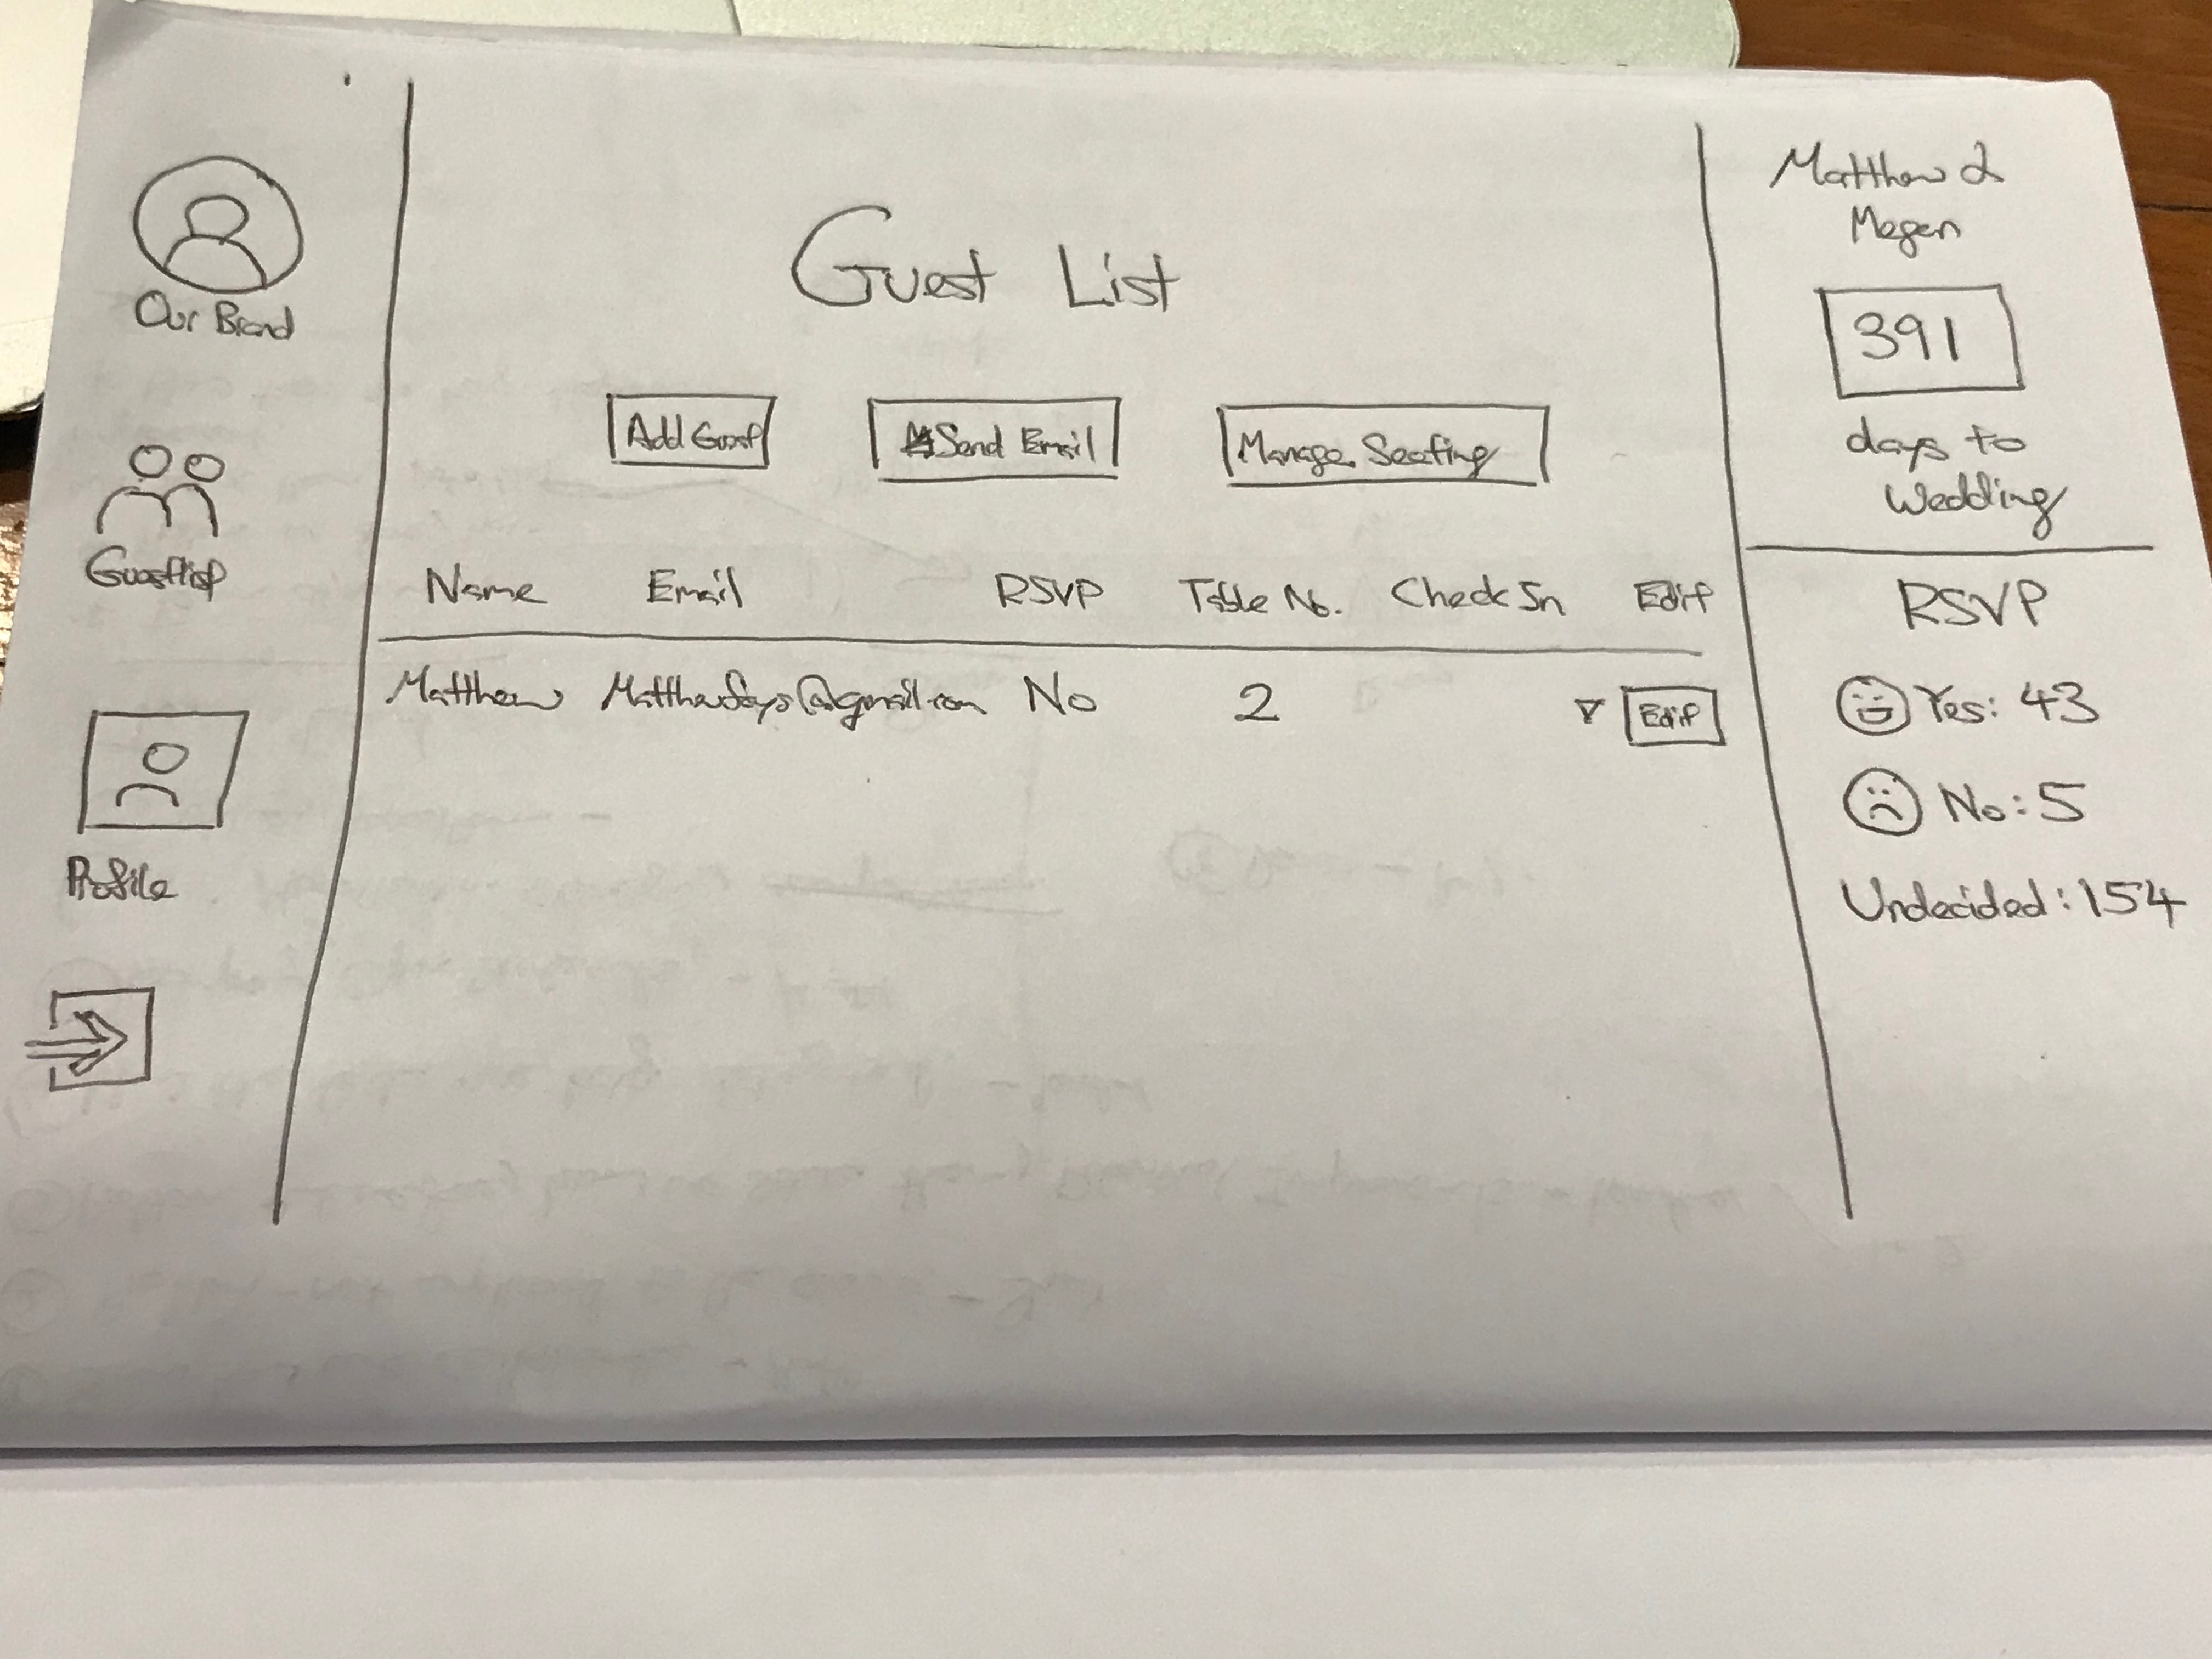 Our Brand
Guestlist
Profile
Guest List
Add Guest
Send Email
Manage Seating
Name Email RSVP Table No. Check In Edit
Matthew No 2 Edit
Matthew &
Megan
391
days to
Wedding
RSVP
Yes: 43
No: 5
Undecided: 154